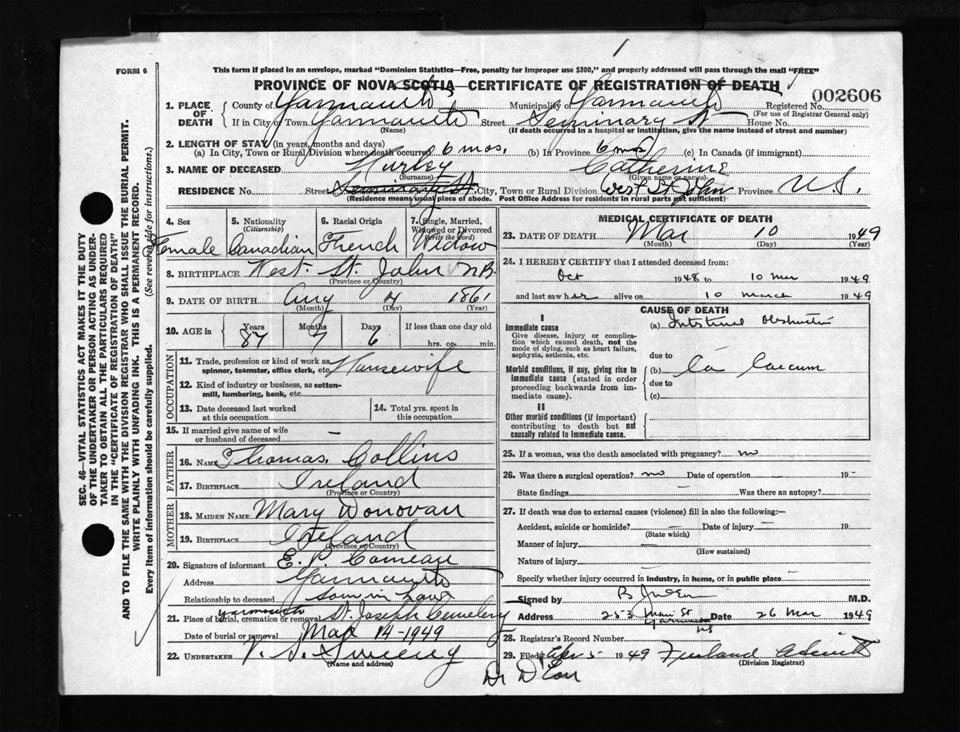 FORM 6
This form if placed in an envelope, marked "Dominion Statistics—Free, penalty for improper use $300," and properly addressed will pass through the mail "FREE"
PROVINCE OF NOVA SCOTIA—CERTIFICATE OF REGISTRATION OF DEATH
002606
1. PLACE OF DEATH County of Yarmouth Municipality of Yarmouth Registered No.
(For use of Registrar General only)
If in City or Town Yarmouth Street Seminary St House No.
(Name) (If death occurred in a hospital or institution, give the name instead of street and number)
2. LENGTH OF STAY (in years, months and days)
(a) In City, Town or Rural Division where death occurred 6 mos. (b) In Province 6 mos (c) In Canada (if immigrant)
3. NAME OF DECEASED Hurley Catherine
(Surname) (Given name or names)
RESIDENCE No. Street Seminary St. City, Town or Rural Division West St John Province
(Residence means usual place of abode. Post Office Address for residents in rural parts not sufficient)
4. Sex 5. Nationality (Citizenship) 6. Racial Origin 7. Single, Married, Widowed or Divorced (Write the word)
Female Canadian French Widow
8. BIRTHPLACE West St. John NB.
(Province or Country)
9. DATE OF BIRTH Aug 4 1861
(Month) (Day) (Year)
10. AGE in Years Months Days If less than one day old
87 7 6 hrs. or min.
OCCUPATION
11. Trade, profession or kind of work as spinner, teamster, office clerk, etc. Housewife
12. Kind of industry or business, as cotton-mill, lumbering, bank, etc.
13. Date deceased last worked at this occupation
14. Total yrs. spent in this occupation
15. If married give name of wife or husband of deceased —
FATHER
16. NAME Thomas Collins
17. BIRTHPLACE Ireland
(Province or Country)
MOTHER
18. MAIDEN NAME Mary Donovan
19. BIRTHPLACE Ireland
(Province or Country)
20. Signature of informant E. P. Comeau
Address Yarmouth
Relationship to deceased Son in Law
21. Place of burial, cremation or removal Yarmouth St. Joseph Cemetery
Date of burial or removal Mar 14-1949
22. UNDERTAKER V. S. Sweeny
(Name and address)
MEDICAL CERTIFICATE OF DEATH
23. DATE OF DEATH Mar 10 1949
(Month) (Day) (Year)
24. I HEREBY CERTIFY that I attended deceased from:
Oct 1948 to 10 Mar 1949
and last saw her alive on 10 March 1949
CAUSE OF DEATH
I
Immediate cause
Give disease, injury or complication which caused death, not the mode of dying, such as heart failure, asphyxia, asthenia, etc.
(a) Intestinal Obstruction
due to
Morbid conditions, if any, giving rise to immediate cause (stated in order proceeding backwards from immediate cause).
(b) Ca Caecum
due to
(c)
II
Other morbid conditions (if important) contributing to death but not causally related to immediate cause.
25. If a woman, was the death associated with pregnancy? no
26. Was there a surgical operation? no Date of operation — 19 -
State findings Was there an autopsy?
27. If death was due to external causes (violence) fill in also the following:—
Accident, suicide or homicide? — Date of injury — 19
(State which)
Manner of injury —
(How sustained)
Nature of injury —
Specify whether injury occurred in industry, in home, or in public place —
Signed by M.D.
Address 253 Main St Yarmouth NS Date 26 Mar 1949
28. Registrar's Record Number
29. Filed Apr 5 - 1949
(Division Registrar)
SEC. 46—VITAL STATISTICS ACT MAKES IT THE DUTY
OF THE UNDERTAKER OR PERSON ACTING AS UNDER-
TAKER TO OBTAIN ALL THE PARTICULARS REQUIRED
IN THE "CERTIFICATE OF REGISTRATION OF DEATH"
AND TO FILE THE SAME WITH THE DIVISION REGISTRAR WHO SHALL ISSUE THE BURIAL PERMIT.
WRITE PLAINLY WITH UNFADING INK. THIS IS A PERMANENT RECORD.
Every item of information should be carefully supplied. (See reverse side for instructions.)